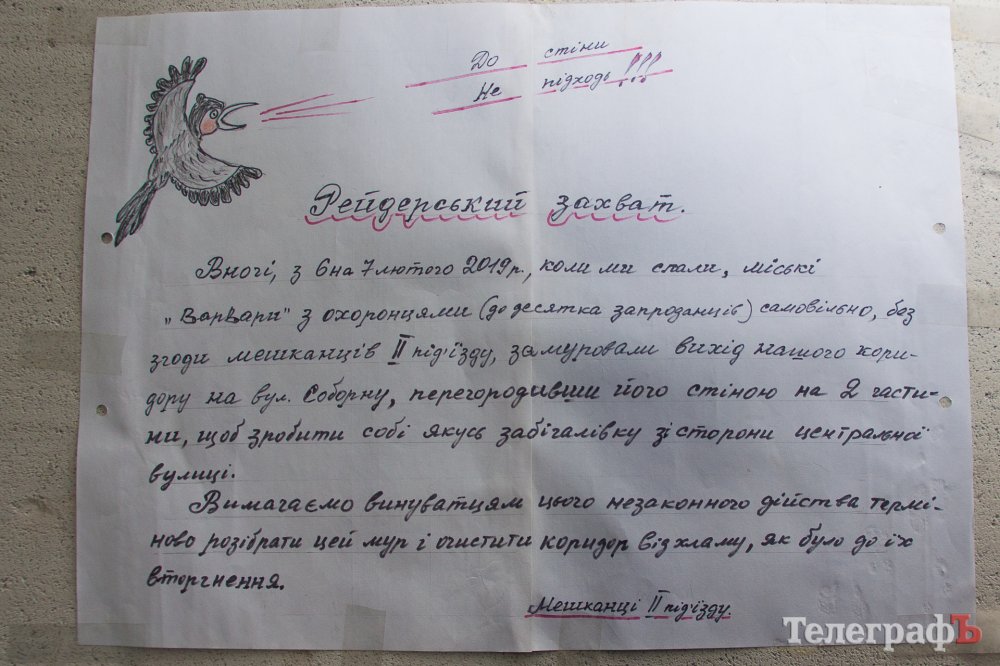 До стіни
Не підходь!!!
Рейдерський захват.
Вночі, з 6 на 7 лютого 2019р., коли ми спали, міські
„Варвари" з охоронцями (до десятка запроданців) самовільно, без
згоди мешканців II під'їзду, замуровали вихід нашого кори-
дору на вул. Соборну, перегородивши його стіною на 2 части-
ни, щоб зробити собі якусь забігалівку зі сторони центральної
вулиці.
Вимагаємо винуватцям цього незаконного дійства термі-
ново розібрати цей мур і очистити коридор від хламу, як було до їх
вторгнення.
Мешканці II під'їзду.
ТелеграфЪ